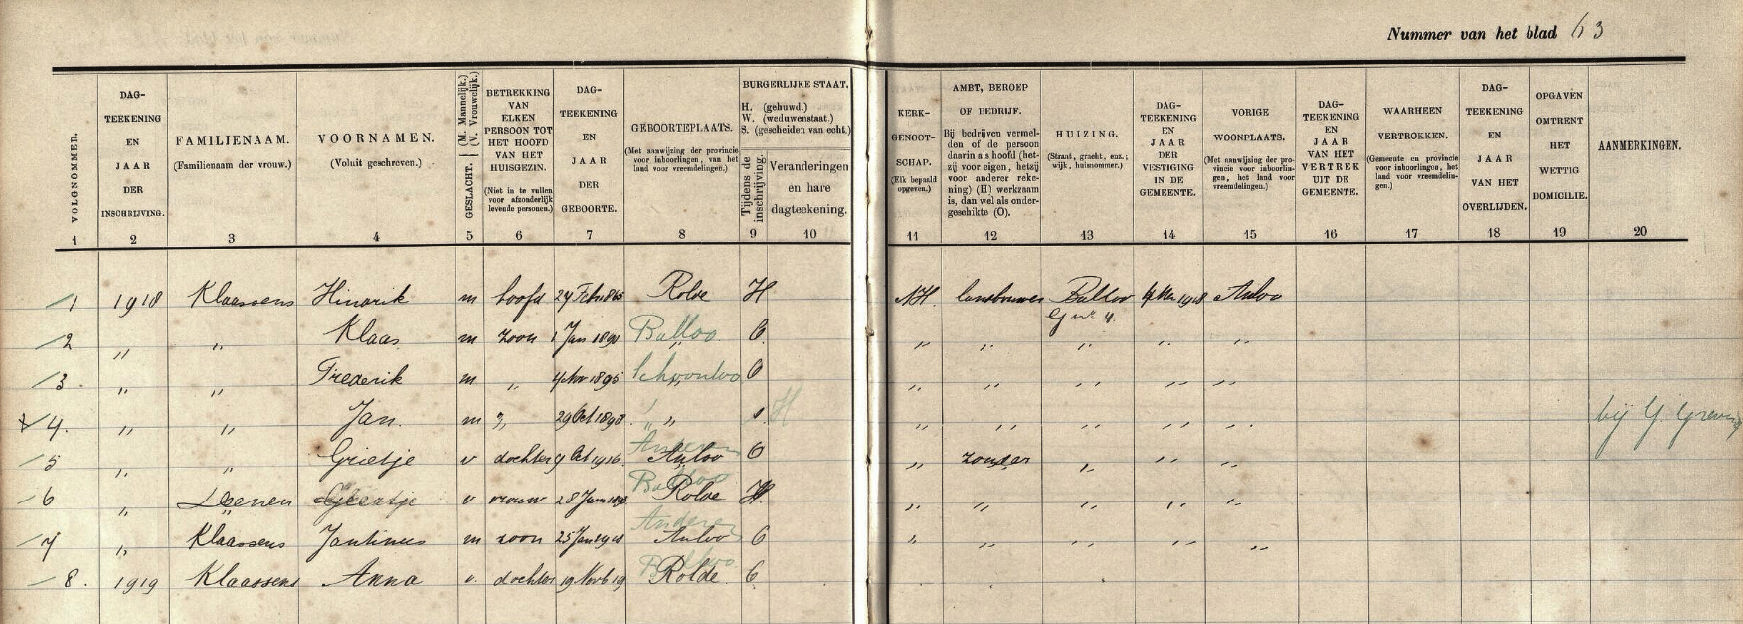 Nummer van het blad 63
VOLGNOMMER. 1
DAG-TEEKENING EN JAAR DER INSCHRIJVING. 2
FAMILIENAAM. (Familienaam der vrouw.) 3
VOORNAMEN. (Voluit geschreven.) 4
GESLACHT. (M. Mannelijk.) (V. Vrouwelijk.) 5
BETREKKING VAN ELKEN PERSOON TOT HET HOOFD VAN HET HUISGEZIN. (Niet in te vullen voor afzonderlijk levende personen.) 6
DAG-TEEKENING EN JAAR DER GEBOORTE. 7
GEBOORTEPLAATS. (Met aanwijzing der provincie voor inboorlingen, van het land voor vreemdelingen.) 8
BURGERLIJKE STAAT.
H. (gehuwd.)
W. (weduwenstaat.)
S. (gescheiden van echt.)
Tijdens de inschrijving. 9
Veranderingen en hare dagteekening. 10
KERK-GENOOT-SCHAP. (Elk bepaald opgeven.) 11
AMBT, BEROEP OF BEDRIJF. Bij bedrijven vermelden of de persoon daarin als hoofd (hetzij voor eigen, hetzij voor anderer rekening) (H) werkzaam is, dan wel als ondergeschikte (O). 12
HUIZING. (Straat, gracht, enz.; wijk, huisnummer.) 13
DAG-TEEKENING EN JAAR DER VESTIGING IN DE GEMEENTE. 14
VORIGE WOONPLAATS. (Met aanwijzing der provincie voor inboorlingen, het land voor vreemdelingen.) 15
DAG-TEEKENING EN JAAR VAN HET VERTREK UIT DE GEMEENTE. 16
WAARHEEN VERTROKKEN. (Gemeente en provincie voor inboorlingen, het land voor vreemdelingen.) 17
DAG-TEEKENING EN JAAR VAN HET OVERLIJDEN. 18
OPGAVEN OMTRENT HET WETTIG DOMICILIE. 19
AANMERKINGEN. 20
1 1918 Klaassens Hinderik m hoofd 24 Feb 1865 Rolde H NH. landbouwer Balloo 1918 Anloo
2 „ „ Klaas m zoon 1 Jan Balloo „ O „ „ „ „ „
3 „ „ Frederik m „ 4 Nov 1895 Schoonloo „ O „ „ „ „ „
4. „ „ Jan. m „ 29 Oct 1898 „ „ H „ „ „ „ „ bij
5 „ „ Grietje v dochter 9 Oct 1916 Anderen Anloo O „ zonder „ „ „
6 „ Geertje v vrouw 28 Balloo Rolde H „ „ „ „ „
7 „ Klaassens Jantinus m zoon 25 Jan Anderen Anloo O „ „ „ „ „
8. 1919 Klaassens Anna v. dochter 19 Nov 19 Balloo Rolde O